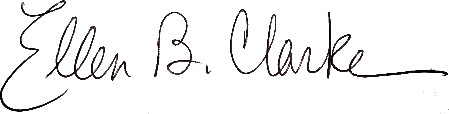 Ellen B. Clarke